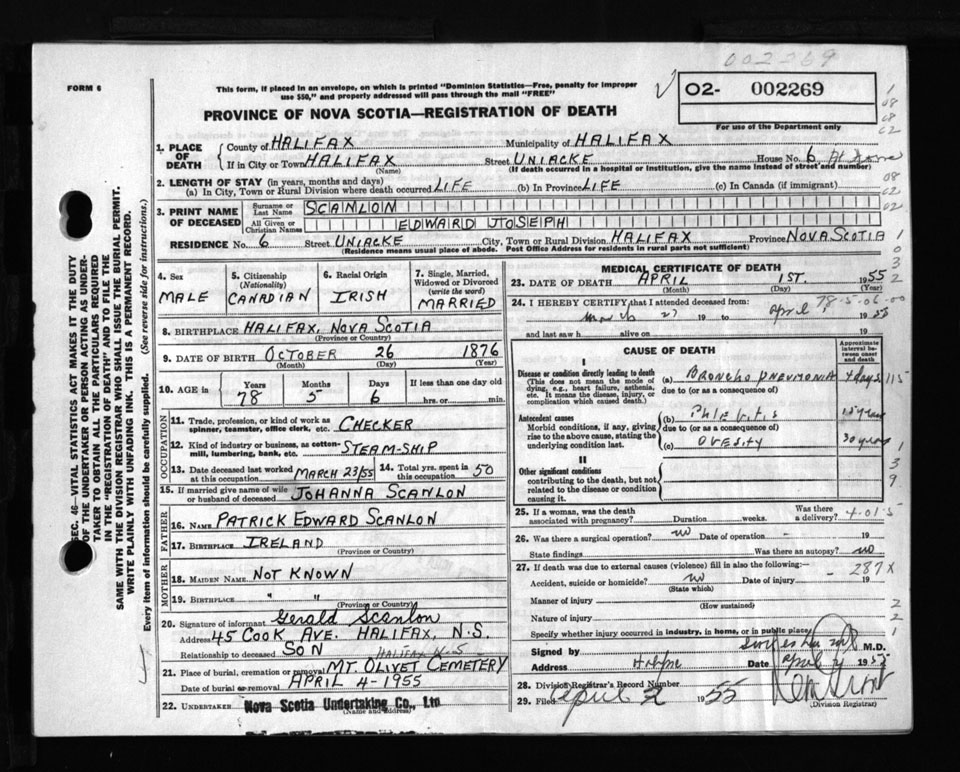 002269
FORM 6
This form, if placed in an envelope, on which is printed "Dominion Statistics—Free, penalty for improper
use $50," and properly addressed will pass through the mail "FREE"
O2- 002269
PROVINCE OF NOVA SCOTIA—REGISTRATION OF DEATH
For use of the Department only
1. PLACE OF DEATH County of HALIFAX Municipality of HALIFAX
If in City or Town HALIFAX (Name) Street UNIACKE House No. 6 At Home
(If death occurred in a hospital or institution, give the name instead of street and number)
2. LENGTH OF STAY (in years, months and days)
(a) In City, Town or Rural Division where death occurred LIFE (b) In Province LIFE (c) In Canada (if immigrant)
3. PRINT NAME OF DECEASED Surname or Last Name SCANLON
All Given or Christian Names EDWARD JOSEPH
RESIDENCE No. 6 Street UNIACKE City, Town or Rural Division HALIFAX Province NOVA SCOTIA
(Residence means usual place of abode. Post Office Address for residents in rural parts not sufficient)
4. Sex MALE
5. Citizenship (Nationality) CANADIAN
6. Racial Origin IRISH
7. Single, Married, Widowed or Divorced (write the word) MARRIED
8. BIRTHPLACE HALIFAX, NOVA SCOTIA
(Province or Country)
9. DATE OF BIRTH OCTOBER 26 1876
(Month) (Day) (Year)
10. AGE in Years 78 Months 5 Days 6 If less than one day old hrs. or min.
OCCUPATION
11. Trade, profession, or kind of work as spinner, teamster, office clerk, etc. CHECKER
12. Kind of industry or business, as cotton-mill, lumbering, bank, etc. STEAM-SHIP
13. Date deceased last worked at this occupation MARCH 23/55 14. Total yrs. spent in this occupation 50
15. If married give name of wife or husband of deceased JOHANNA SCANLON
FATHER
16. NAME PATRICK EDWARD SCANLON
17. BIRTHPLACE IRELAND
(Province or Country)
MOTHER
18. MAIDEN NAME NOT KNOWN
19. BIRTHPLACE " "
(Province or Country)
20. Signature of informant Gerald Scanlon
Address 45 COOK AVE. HALIFAX, N.S.
Relationship to deceased SON HALIFAX N-S
21. Place of burial, cremation or removal MT. OLIVET CEMETERY
Date of burial or removal APRIL 4-1955
22. UNDERTAKER Nova Scotia Undertaking Co., Ltd
(Name and address)
MEDICAL CERTIFICATE OF DEATH
23. DATE OF DEATH APRIL 1ST. 1955
(Month) (Day) (Year)
24. I HEREBY CERTIFY, that I attended deceased from:
78-5-06-00
March 27 19 to April 1 1955
and last saw h alive on 19
CAUSE OF DEATH
Approximate interval between onset and death
I
Disease or condition directly leading to death
(This does not mean the mode of dying, e.g., heart failure, asthenia, etc. It means the disease, injury, or complication which caused death.)
(a) BRONCHO PNEUMONIA 4 days
due to (or as a consequence of)
Antecedent causes
Morbid conditions, if any, giving rise to the above cause, stating the underlying condition last.
(b) Phlebitis 15 years
due to (or as a consequence of)
(c) OBESITY 30 years
II
Other significant conditions
contributing to the death, but not related to the disease or condition causing it.
25. If a woman, was the death associated with pregnancy? Duration weeks. Was there a delivery? 4-01-5
26. Was there a surgical operation? no Date of operation - 19
State findings Was there an autopsy? no
27. If death was due to external causes (violence) fill in also the following:— 287X
Accident, suicide or homicide? no Date of injury 19
(State which)
Manner of injury
(How sustained)
Nature of injury
Specify whether injury occurred in industry, in home, or in public place
Signed by M.D.
Address Halifax Date April 1955
28. Division Registrar's Record Number
29. Filed April 2 1955
(Division Registrar)
SEC. 46—VITAL STATISTICS ACT MAKES IT THE DUTY
OF THE UNDERTAKER OR PERSON ACTING AS UNDER-
TAKER TO OBTAIN ALL THE PARTICULARS REQUIRED
IN THE "REGISTRATION OF DEATH" AND TO FILE THE
SAME WITH THE DIVISION REGISTRAR WHO SHALL ISSUE THE BURIAL PERMIT.
WRITE PLAINLY WITH UNFADING INK. THIS IS A PERMANENT RECORD.
Every item of information should be carefully supplied. (See reverse side for instructions.)